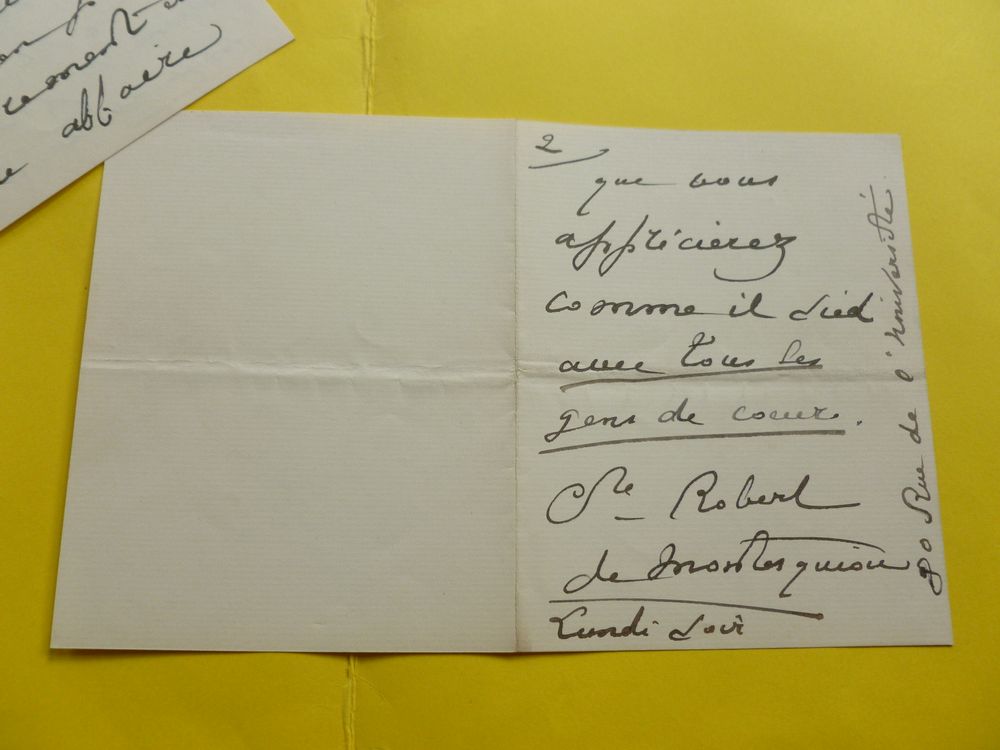 rement
affaire
2
que vous
apprécierez
comme il sied
avec tous les
gens de coeur.
Cte Robert
de Montesquiou
Lundi soir
90 Rue de l'Université.